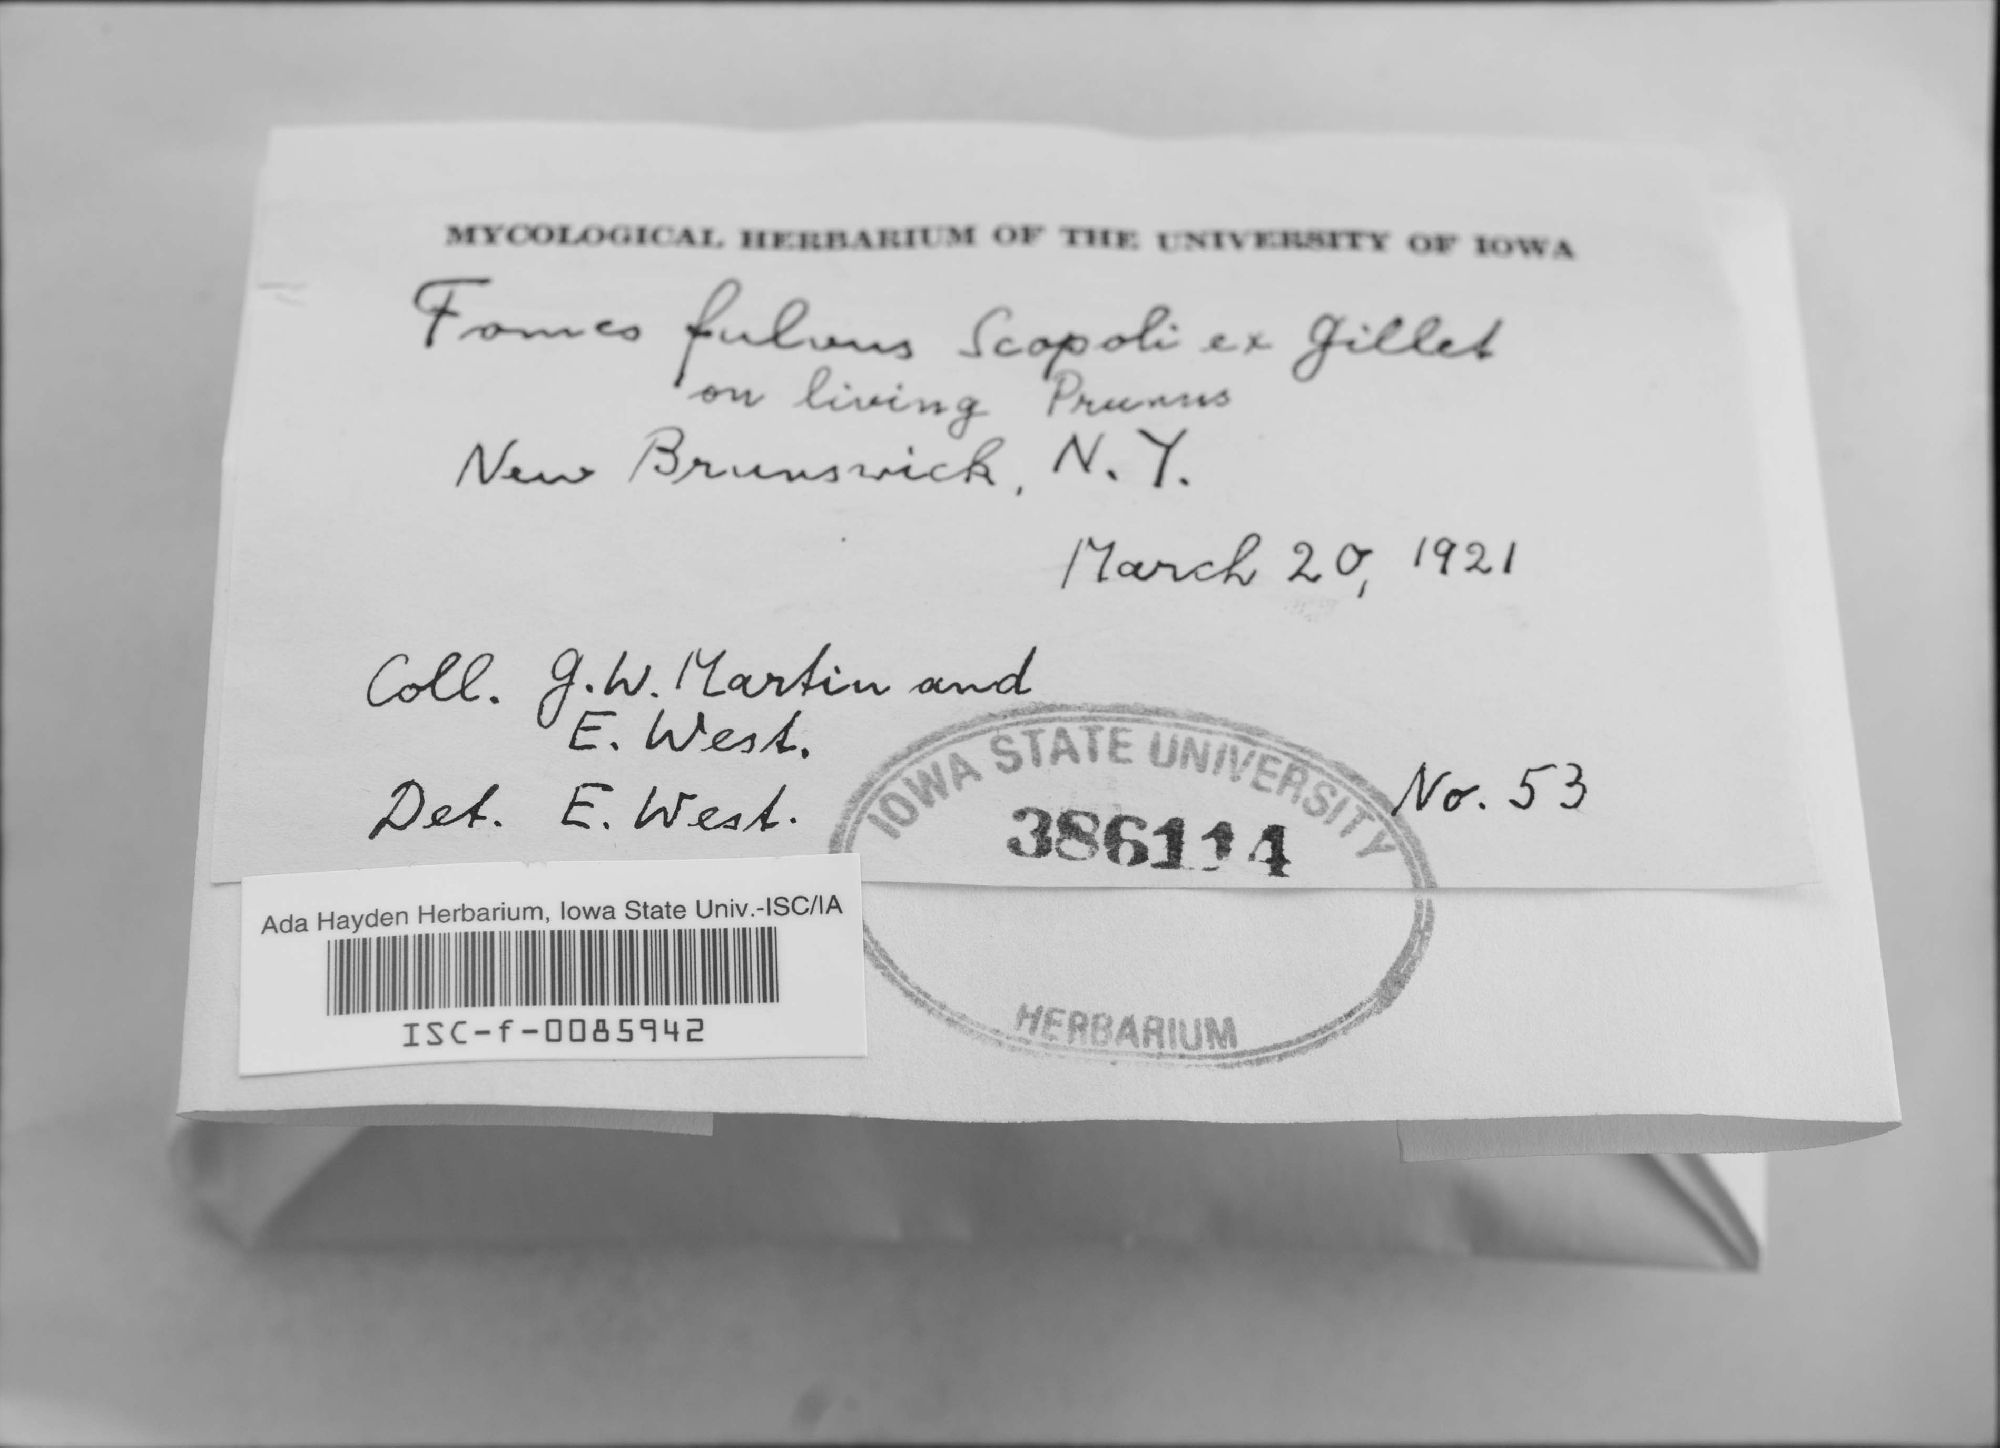 MYCOLOGICAL HERBARIUM OF THE UNIVERSITY OF IOWA
Fomes fulvus Scopoli ex Gillet
on living Prunus
New Brunswick, N.Y.
March 20, 1921
Coll. G.W. Martin and
E. West.
Det. E. West.
No. 53
IOWA STATE UNIVERSITY
386114
HERBARIUM
Ada Hayden Herbarium, Iowa State Univ.-ISC/IA
ISC-f-0085942